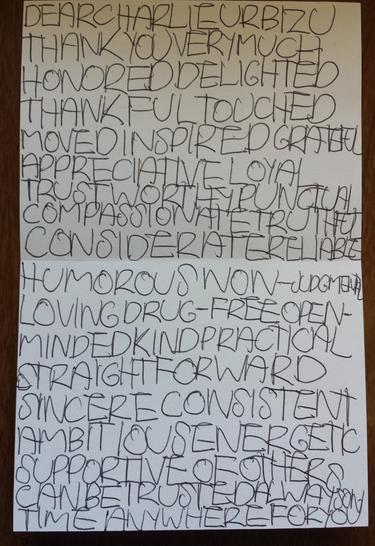 DEAR CHARLIE URBIZU
THANK YOU VERY MUCH
HONORED DELIGHTED
THANKFUL TOUCHED
MOVED INSPIRED GRATEFUL
APPRECIATIVE LOYAL
TRUSTWORTHY PUNCTUAL
COMPASSIONATE TRUTHFUL
CONSIDERATE RELIABLE
HUMOROUS NON-JUDGMENTAL
LOVING DRUG-FREE OPEN-
MINDED KIND PRACTICAL
STRAIGHTFORWARD
SINCERE CONSISTENT
AMBITIOUS ENERGETIC
SUPPORTIVE OF OTHERS
CAN BE TRUSTED ALWAYS ANY
TIME ANYWHERE FOR YOU